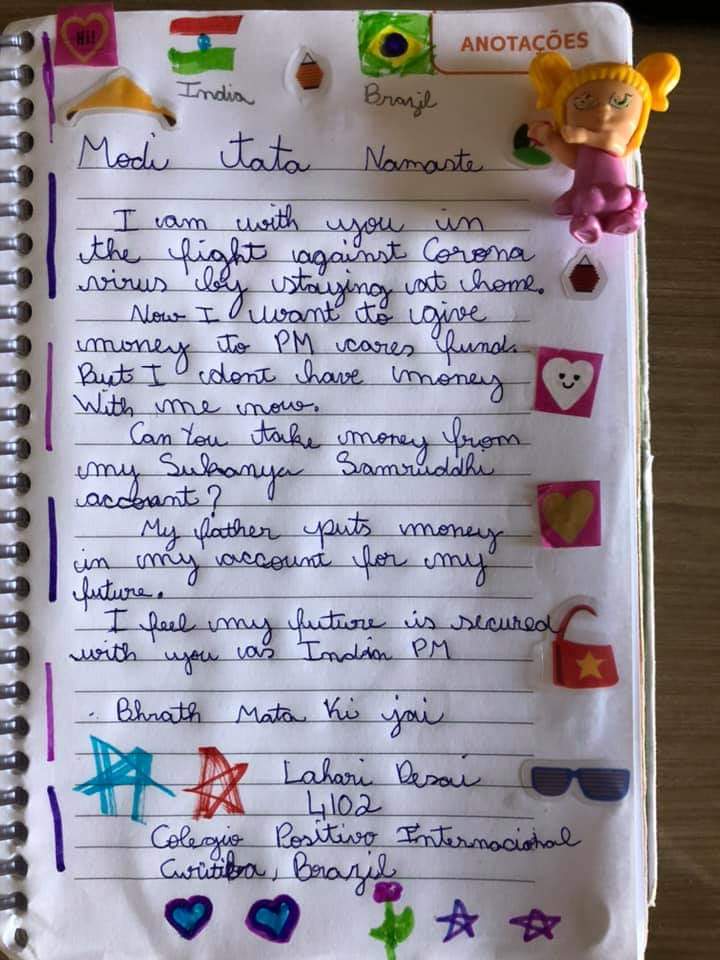 Hi!
ANOTAÇÕES
India
Brazil
Modi tata Namaste
I am with you in
the fight against Corona
virus by staying at home.
Now I want to give
money to PM cares fund.
But I dont have money
With me now.
Can You take money from
my Sukanya Samruddhi
account?
My father puts money
in my account for my
future.
I feel my future is secured
with you as Indian PM
- Bhrath Mata Ki jai
Lahari Desai
4102
Colegio Positivo Internacional
Curitiba, Brazil